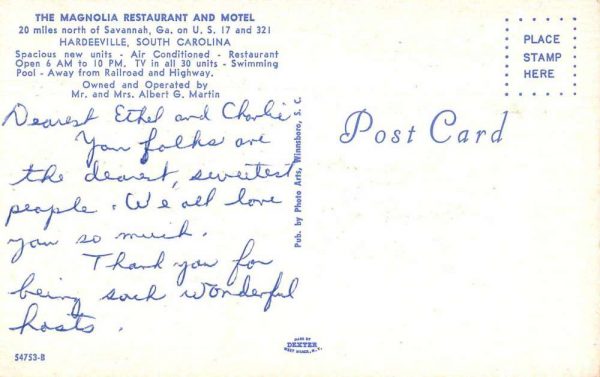 THE MAGNOLIA RESTAURANT AND MOTEL
20 miles north of Savannah, Ga. on U. S. 17 and 321
HARDEEVILLE, SOUTH CAROLINA
Spacious new units - Air Conditioned - Restaurant
Open 6 AM to 10 PM. TV in all 30 units - Swimming
Pool - Away from Railroad and Highway.
Owned and Operated by
Mr. and Mrs. Albert G. Martin
Dearest Ethel and Charlie
You folks are
the dearest, sweetest
people. We all love
you so much.
Thank you for
being such wonderful
hosts.
54753-B
Pub. by Photo Arts, Winnsboro, S. C.
MADE BY
DEXTER
WEST NYACK, N. Y.
Post Card
PLACE
STAMP
HERE